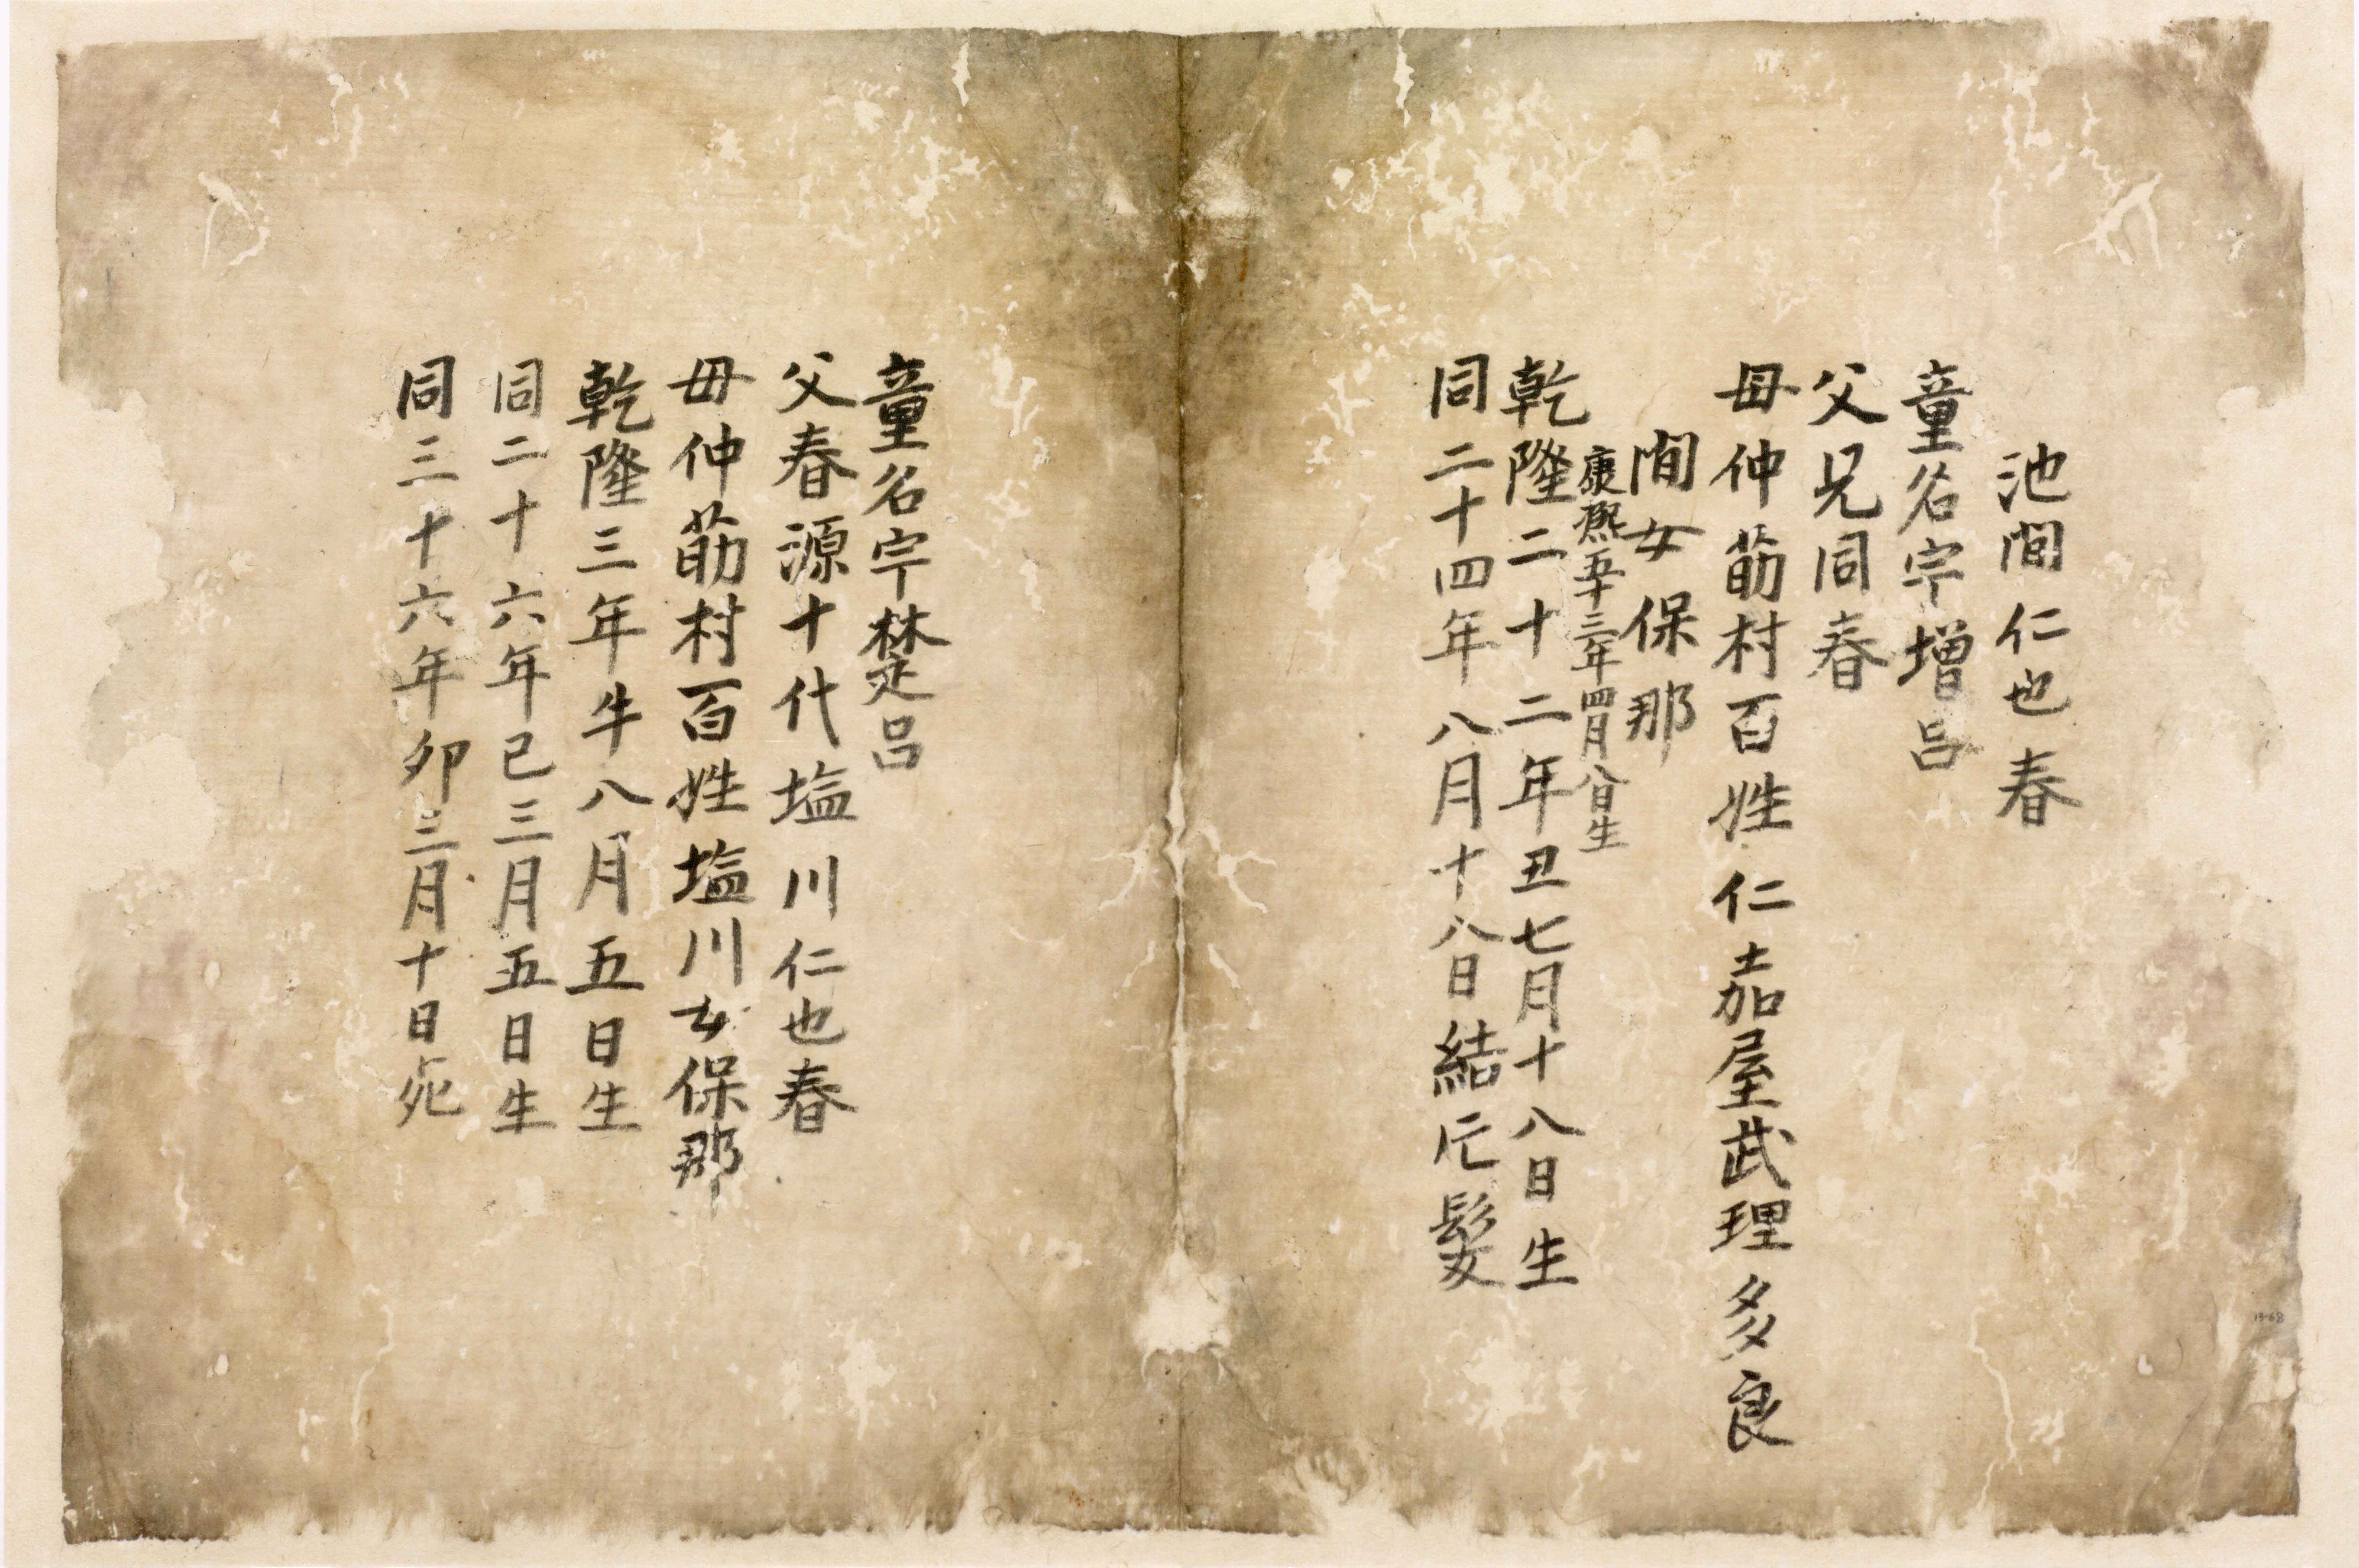 池間仁也春
童名宇増呂
父兄同春
母仲筋村百姓仁嘉屋武理多良
間女保那
康熈五十三年四月八日生
乾隆二十二年丑七月十八日生
同二十四年八月十八日結片髪
童名宇楚呂
父春源十代塩川仁也春
母仲筋村百姓塩川女保那
乾隆三年牛八月五日生
同二十六年巳三月五日生
同三十六年卯三月十日死